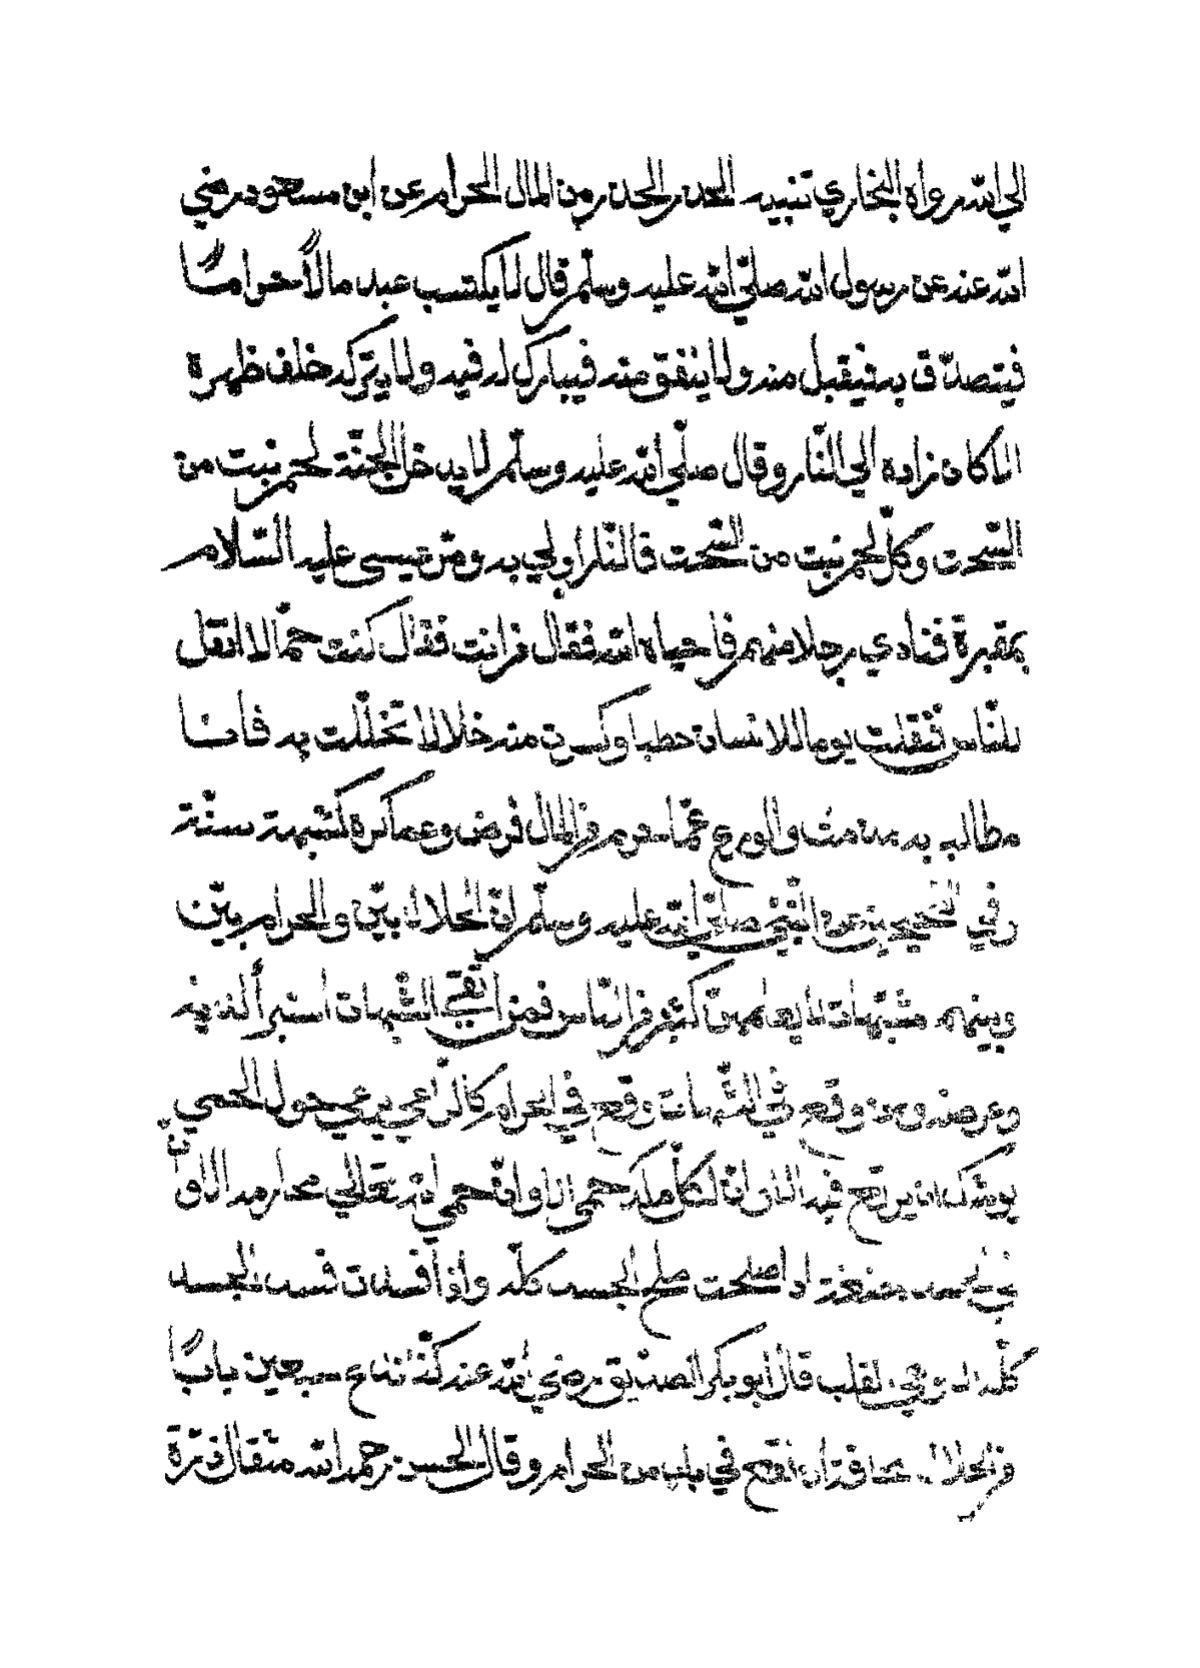 الي الله رواه البخاري تنبيه الحذر الحذر من المال الحرام عن ابن مسعود رضي
الله عنه عن رسول الله صلّي الله عليه وسلّم قال لا يكتسب عبد مالاً حراماً
فيتصدّق به فيقبل منه ولا ينفق منه فيبارك له فيه ولا يتركه خلف ظهره
الا كان زاده الي النّار وقال صلّي الله عليه وسلّم لا يدخل الجنّة لحم نبت من
السّحت وكلّ لحم نبت من السّحت فالنّار اولي به ومرّ عيسى عليه السّلام
بمقبرة فنادي رجلا منهم فاحياه الله فقال من انت فقال كنت حمّالا انقل
للنّاس فنقلت يوما للانسان حطبا وكسرت منه خلالا تخلّلت به فانا
مطالب به منذ مت والورع عمّا حرم من المال فرض وعما كره لشبهة سنّة
وفي الصّحيحين عن النّبيّ صلّي الله عليه وسلّم انّ الحلال بيّن والحرام بيّن
وبينهم مشبّهات لا يعلمهنّ كثير من النّاس فمن اتّقي الشّبهات استبرأ لدينه
وعرضه ومن وقع في الشّبهات وقع في الحرام كالرّاعي يرعي حول الحمي
يوشك ان يرتع فيه الا وان لكلّ ملك حمي الا وانّ حمي الله تعالي محارمه الا وان
في الجسد مضغة اذا صلحت صلح الجسد كلّه واذا فسدت فسد الجسد
كلّه الا وهي القلب قال ابو بكر الصدّيق رضي الله عنه كنّا ندع سبعين باباً
من الحلال مخافة ان نقع في باب من الحرام وقال الحسن رحمه الله مثقال ذرّة